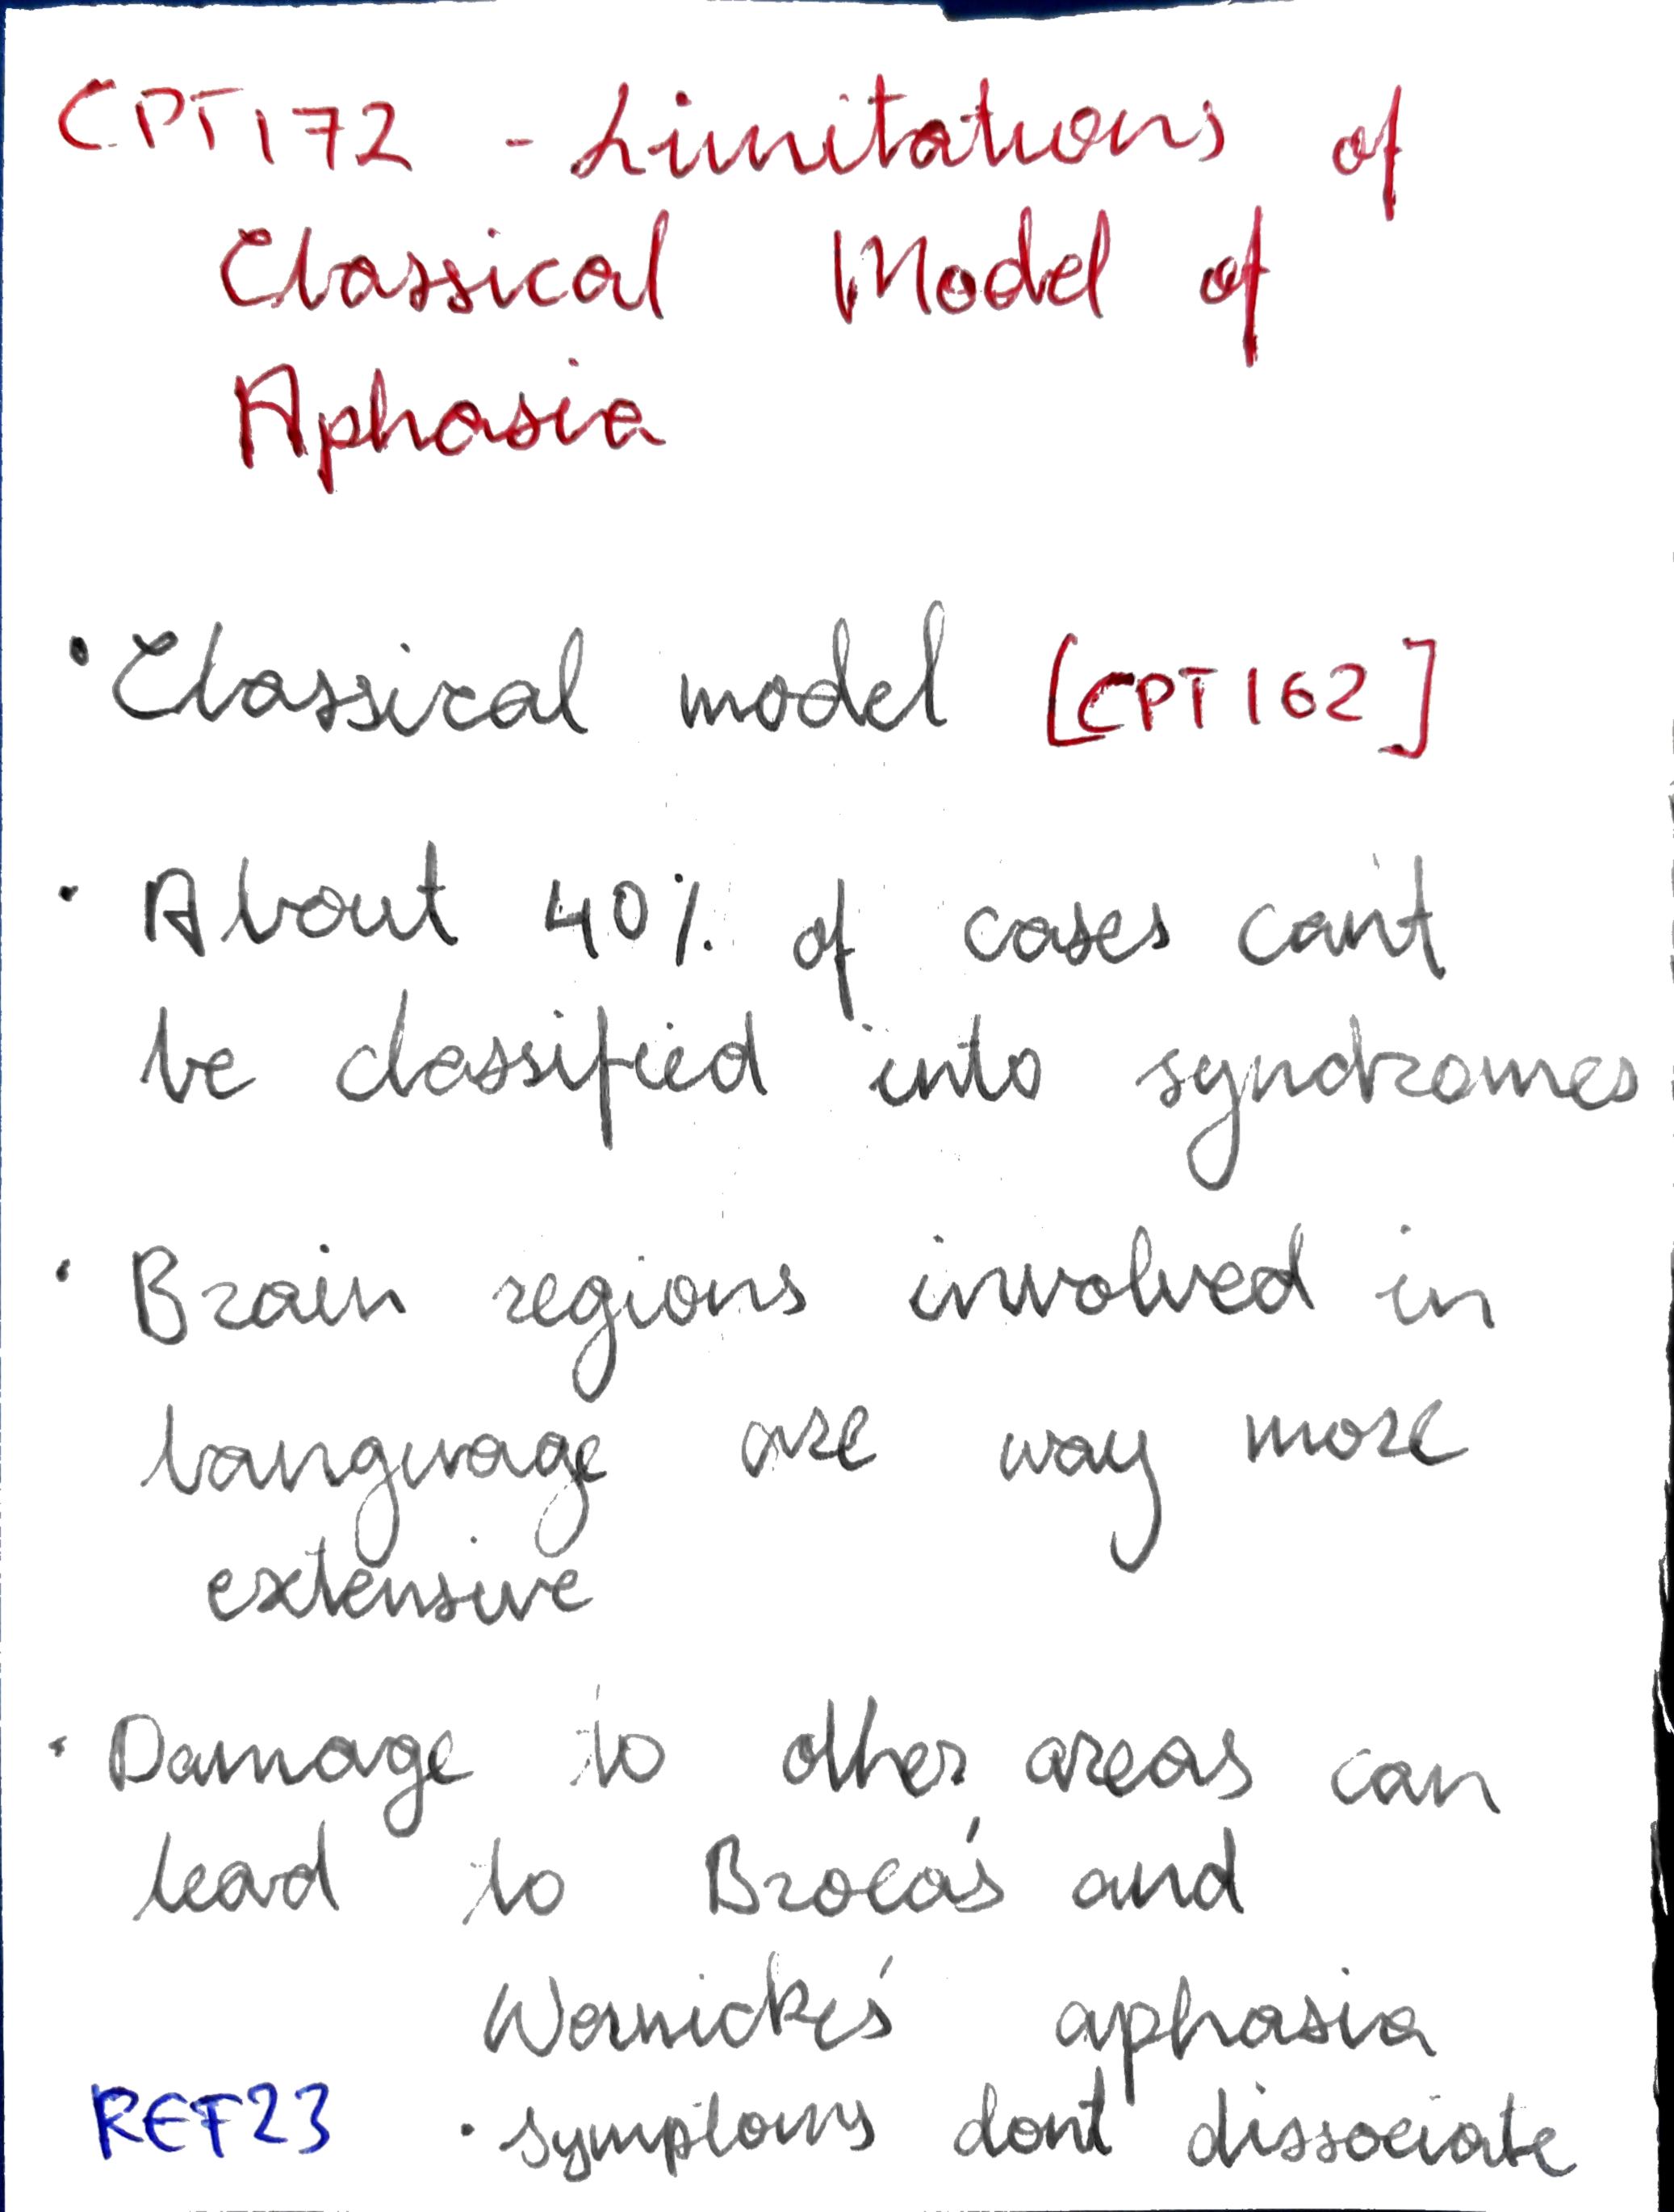 CPT172 - Limitations of
Classical Model of
Aphasia
• Classical model [CPT162]
• About 40% of cases can't
be classified into syndromes
• Brain regions involved in
language are way more
extensive
• Damage to other areas can
lead to Broca's and
Wernicke's aphasia
REF23 • symptoms don't dissociate